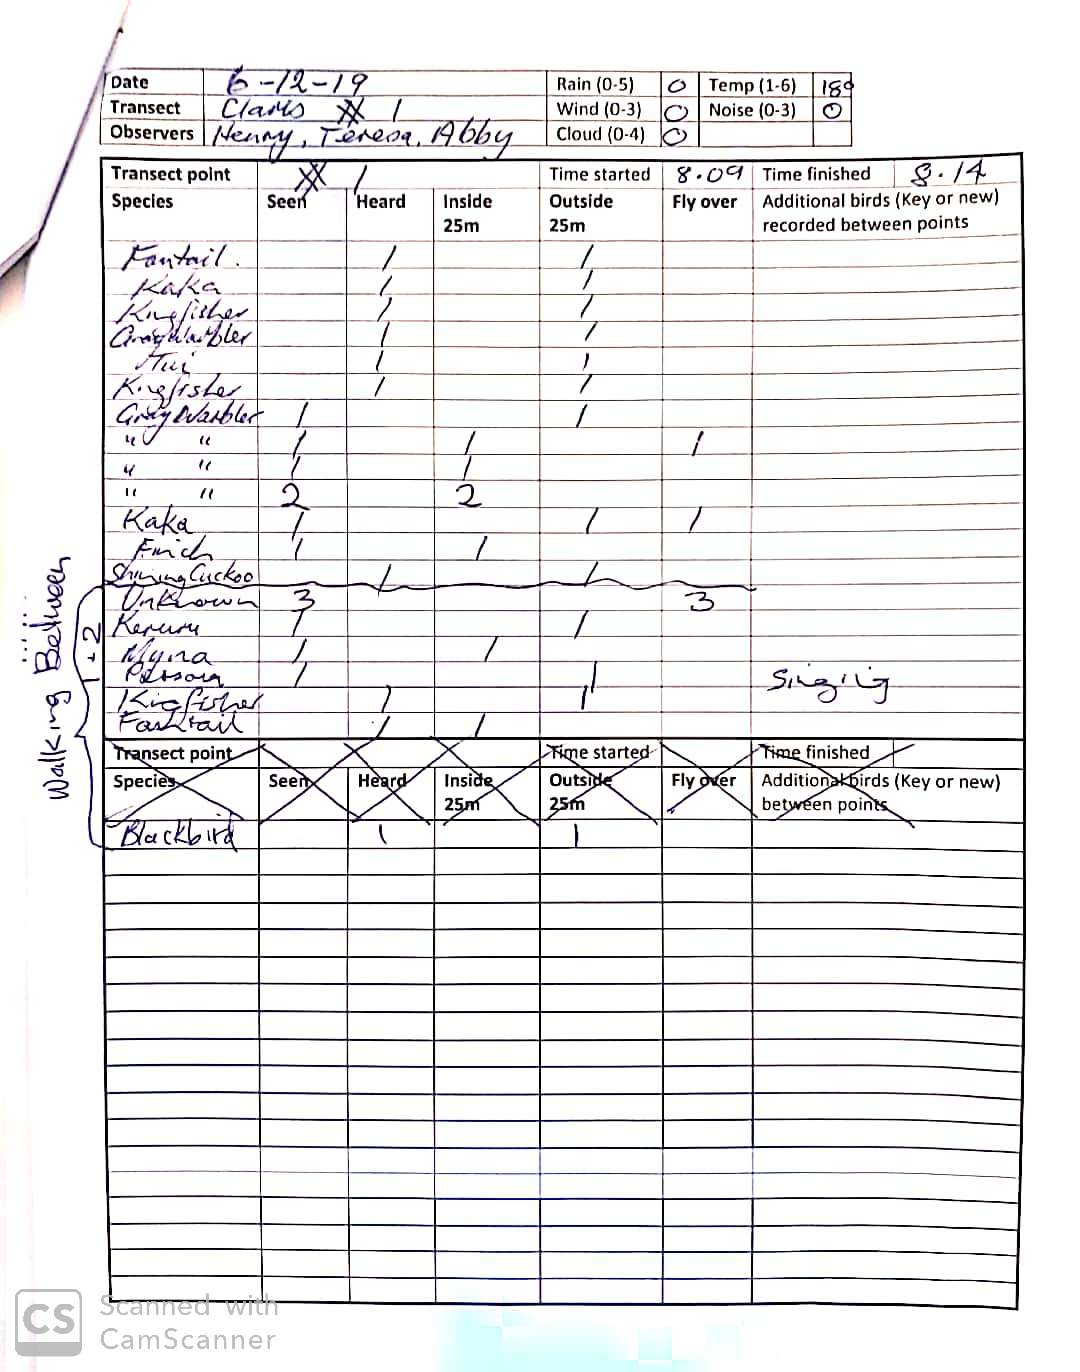 Date 6-12-19 Rain (0-5) 0 Temp (1-6) 18°
Transect Clarks 1 Wind (0-3) 0 Noise (0-3) 0
Observers Henny, Teresa, Abby Cloud (0-4) 0
Transect point 1 Time started 8.09 Time finished 8.14
Species Seen Heard Inside 25m Outside 25m Fly over Additional birds (Key or new) recorded between points
Fantail. / /
Kaka / /
Kingfisher / /
Gray Warbler / /
Tui / /
Kingfisher / /
Gray Warbler / /
" " / / /
" " / /
" " 2 2
Kaka / / /
Finch / /
Shining Cuckoo / /
Walking Between 1+2
Unknown 3 3
Kereru / /
Myna / /
/ / Singing
Kingfisher / /
Fantail / /
Transect point Time started Time finished
Species Seen Heard Inside 25m Outside 25m Fly over Additional birds (Key or new) between points
Blackbird 1 1
CS Scanned with
CamScanner